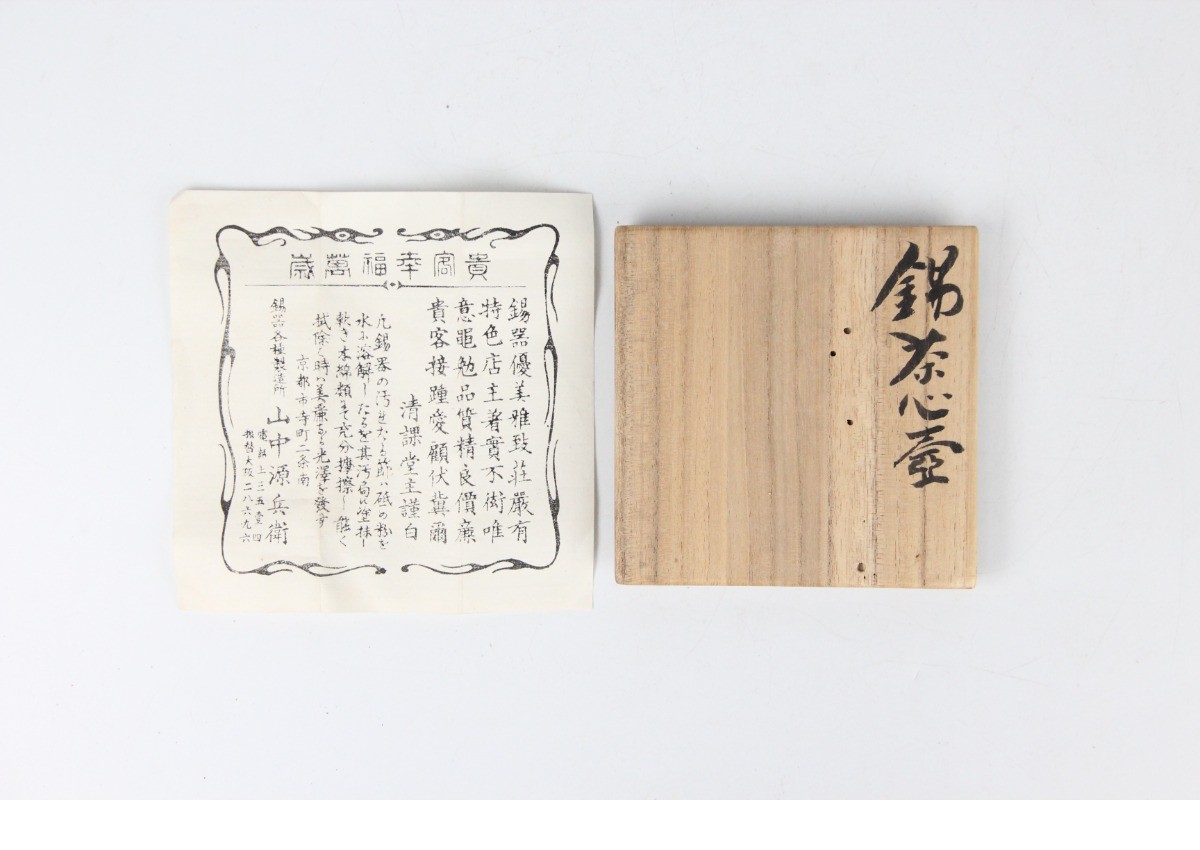 貴客幸福萬歳
錫器優美雅致荘嚴有
特色店主著實不衒唯
意黽勉品質精良價廉
貴客接踵愛顧伏冀爾
清課堂主謹白
凡錫器の汚れたる節ハ砥の粉を
水に溶解したるを其汚局に塗抹し
軟き木綿類にて充分擦し能く
拭除く時ハ美麗なる光澤を發す
京都市寺町二条南
錫器各種製造所 山中源兵衛
電話上三五壹四
振替大阪二八六九六
錫茶心壷